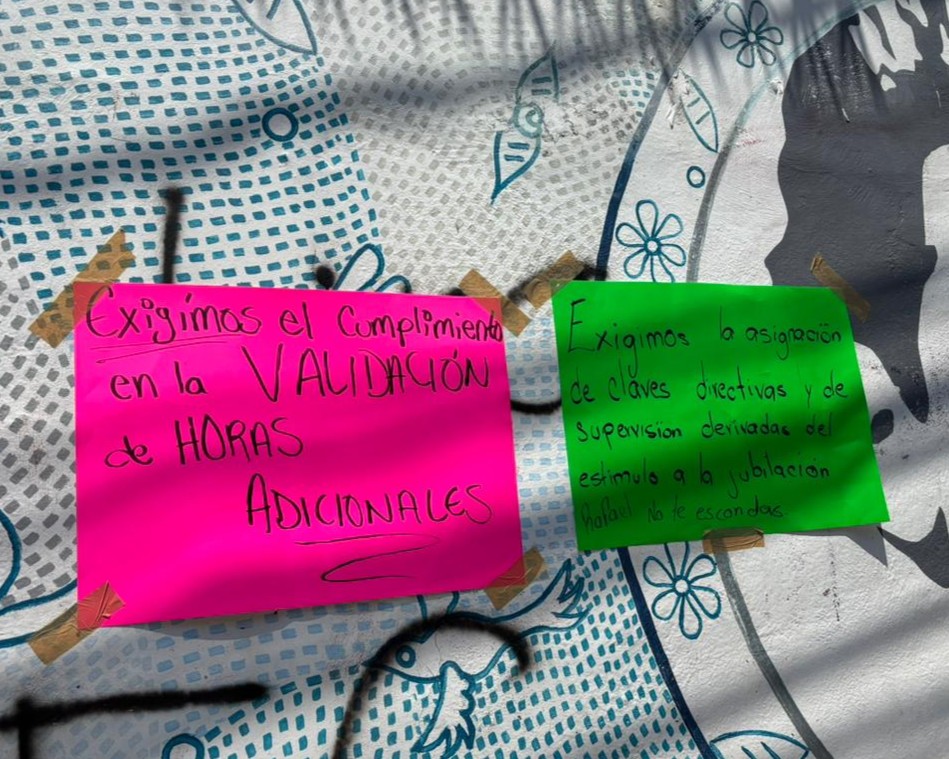 Exigimos el Cumplimiento
en la VALIDACIÓN
de HORAS
ADICIONALES
Exigimos la asignación
de claves directivas y de
supervisión derivadas del
estimulo a la jubilación
Rafael No te escondas.